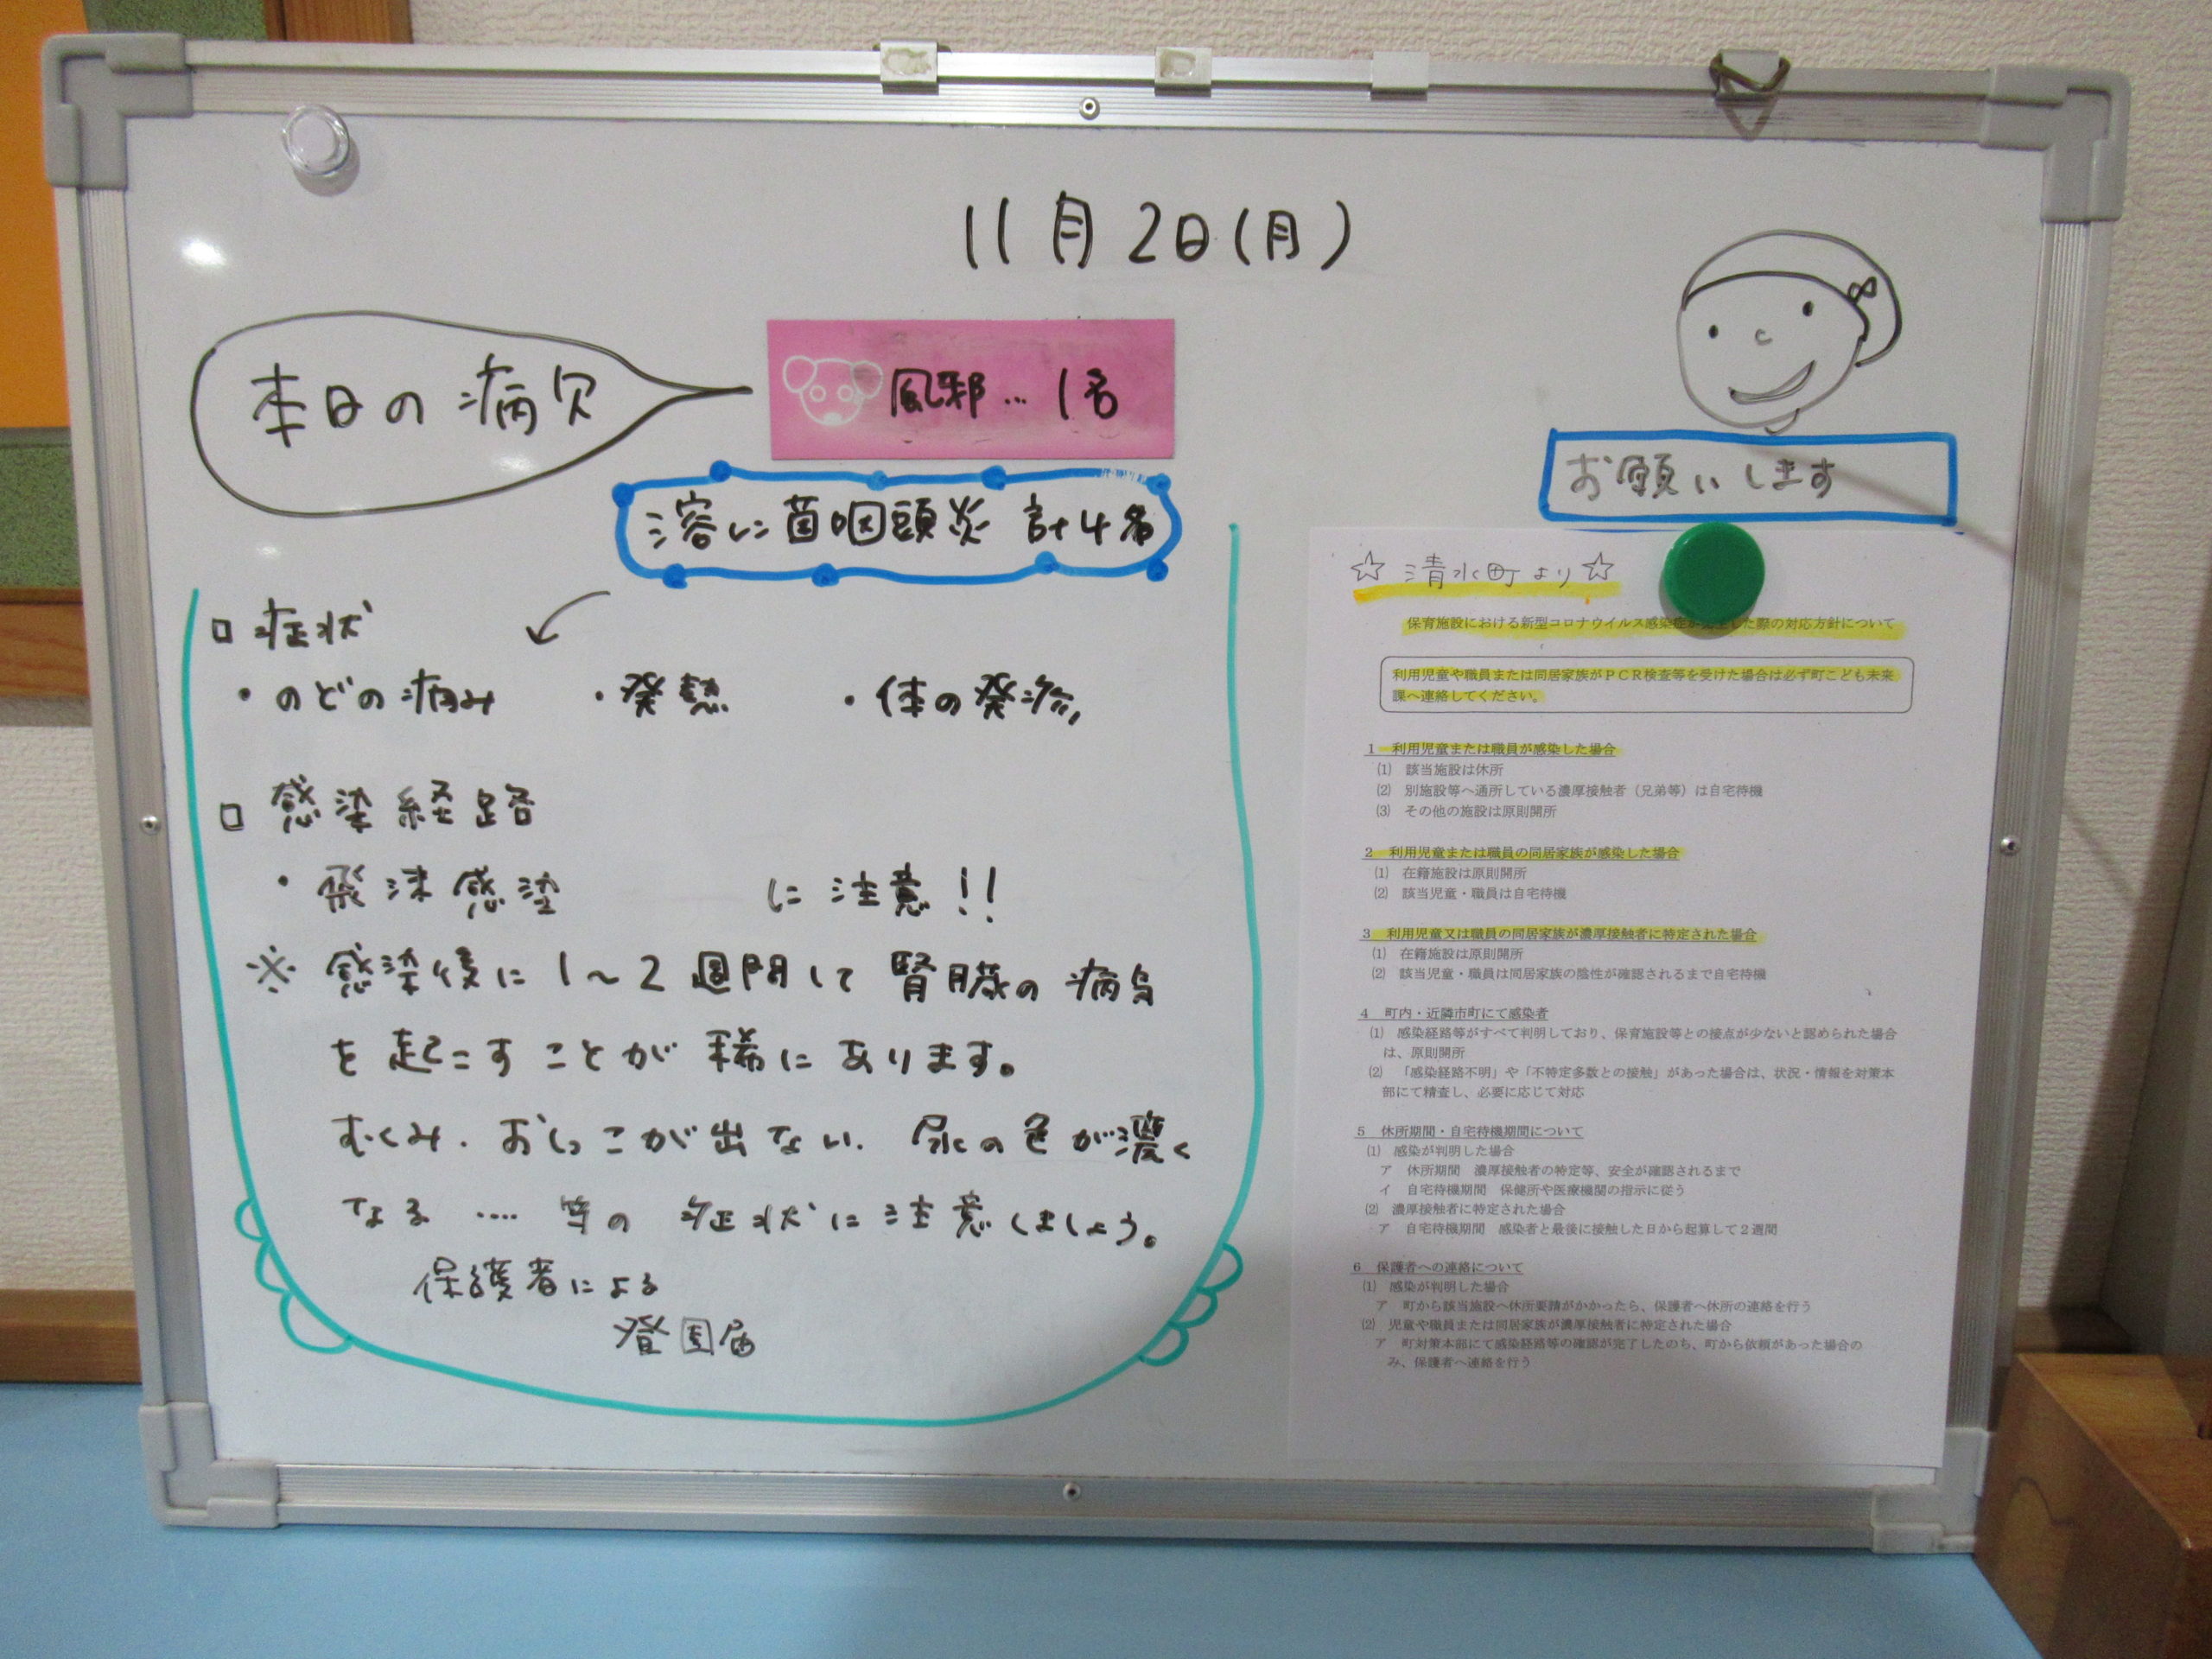 11月2日(月)
本日の病欠
風邪…1名
溶レン菌咽頭炎 計4名
□ 症状
・のどの痛み ・発熱 ・体の発疹
□ 感染経路
・飛沫感染 に注意!!
※ 感染後に1～2週間して腎臓の病気
を起こすことが稀にあります。
むくみ.おしっこが出ない.尿の色が濃く
なる …. 等の症状に注意しましょう。
保護者による
登園届
お願いします
☆ 清水町より☆
保育施設における新型コロナウイルス感染症が した際の対応方針について
利用児童や職員または同居家族がPCR検査等を受けた場合は必ず町こども未来
課へ連絡してください。
1 利用児童または職員が感染した場合
(1) 該当施設は休所
(2) 別施設等へ通所している濃厚接触者(兄弟等)は自宅待機
(3) その他の施設は原則開所
2 利用児童または職員の同居家族が感染した場合
(1) 在籍施設は原則開所
(2) 該当児童・職員は自宅待機
3 利用児童又は職員の同居家族が濃厚接触者に特定された場合
(1) 在籍施設は原則開所
(2) 該当児童・職員は同居家族の陰性が確認されるまで自宅待機
4 町内・近隣市町にて感染者
(1) 感染経路等がすべて判明しており、保育施設等との接点が少ないと認められた場合
は、原則開所
(2) 「感染経路不明」や「不特定多数との接触」があった場合は、状況・情報を対策本
部にて精査し、必要に応じて対応
5 休所期間・自宅待機期間について
(1) 感染が判明した場合
ア 休所期間 濃厚接触者の特定等、安全が確認されるまで
イ 自宅待機期間 保健所や医療機関の指示に従う
(2) 濃厚接触者に特定された場合
ア 自宅待機期間 感染者と最後に接触した日から起算して2週間
6 保護者への連絡について
(1) 感染が判明した場合
ア 町から該当施設へ休所要請がかかったら、保護者へ休所の連絡を行う
(2) 児童や職員または同居家族が濃厚接触者に特定された場合
ア 町対策本部にて感染経路等の確認が完了したのち、町から依頼があった場合の
み、保護者へ連絡を行う